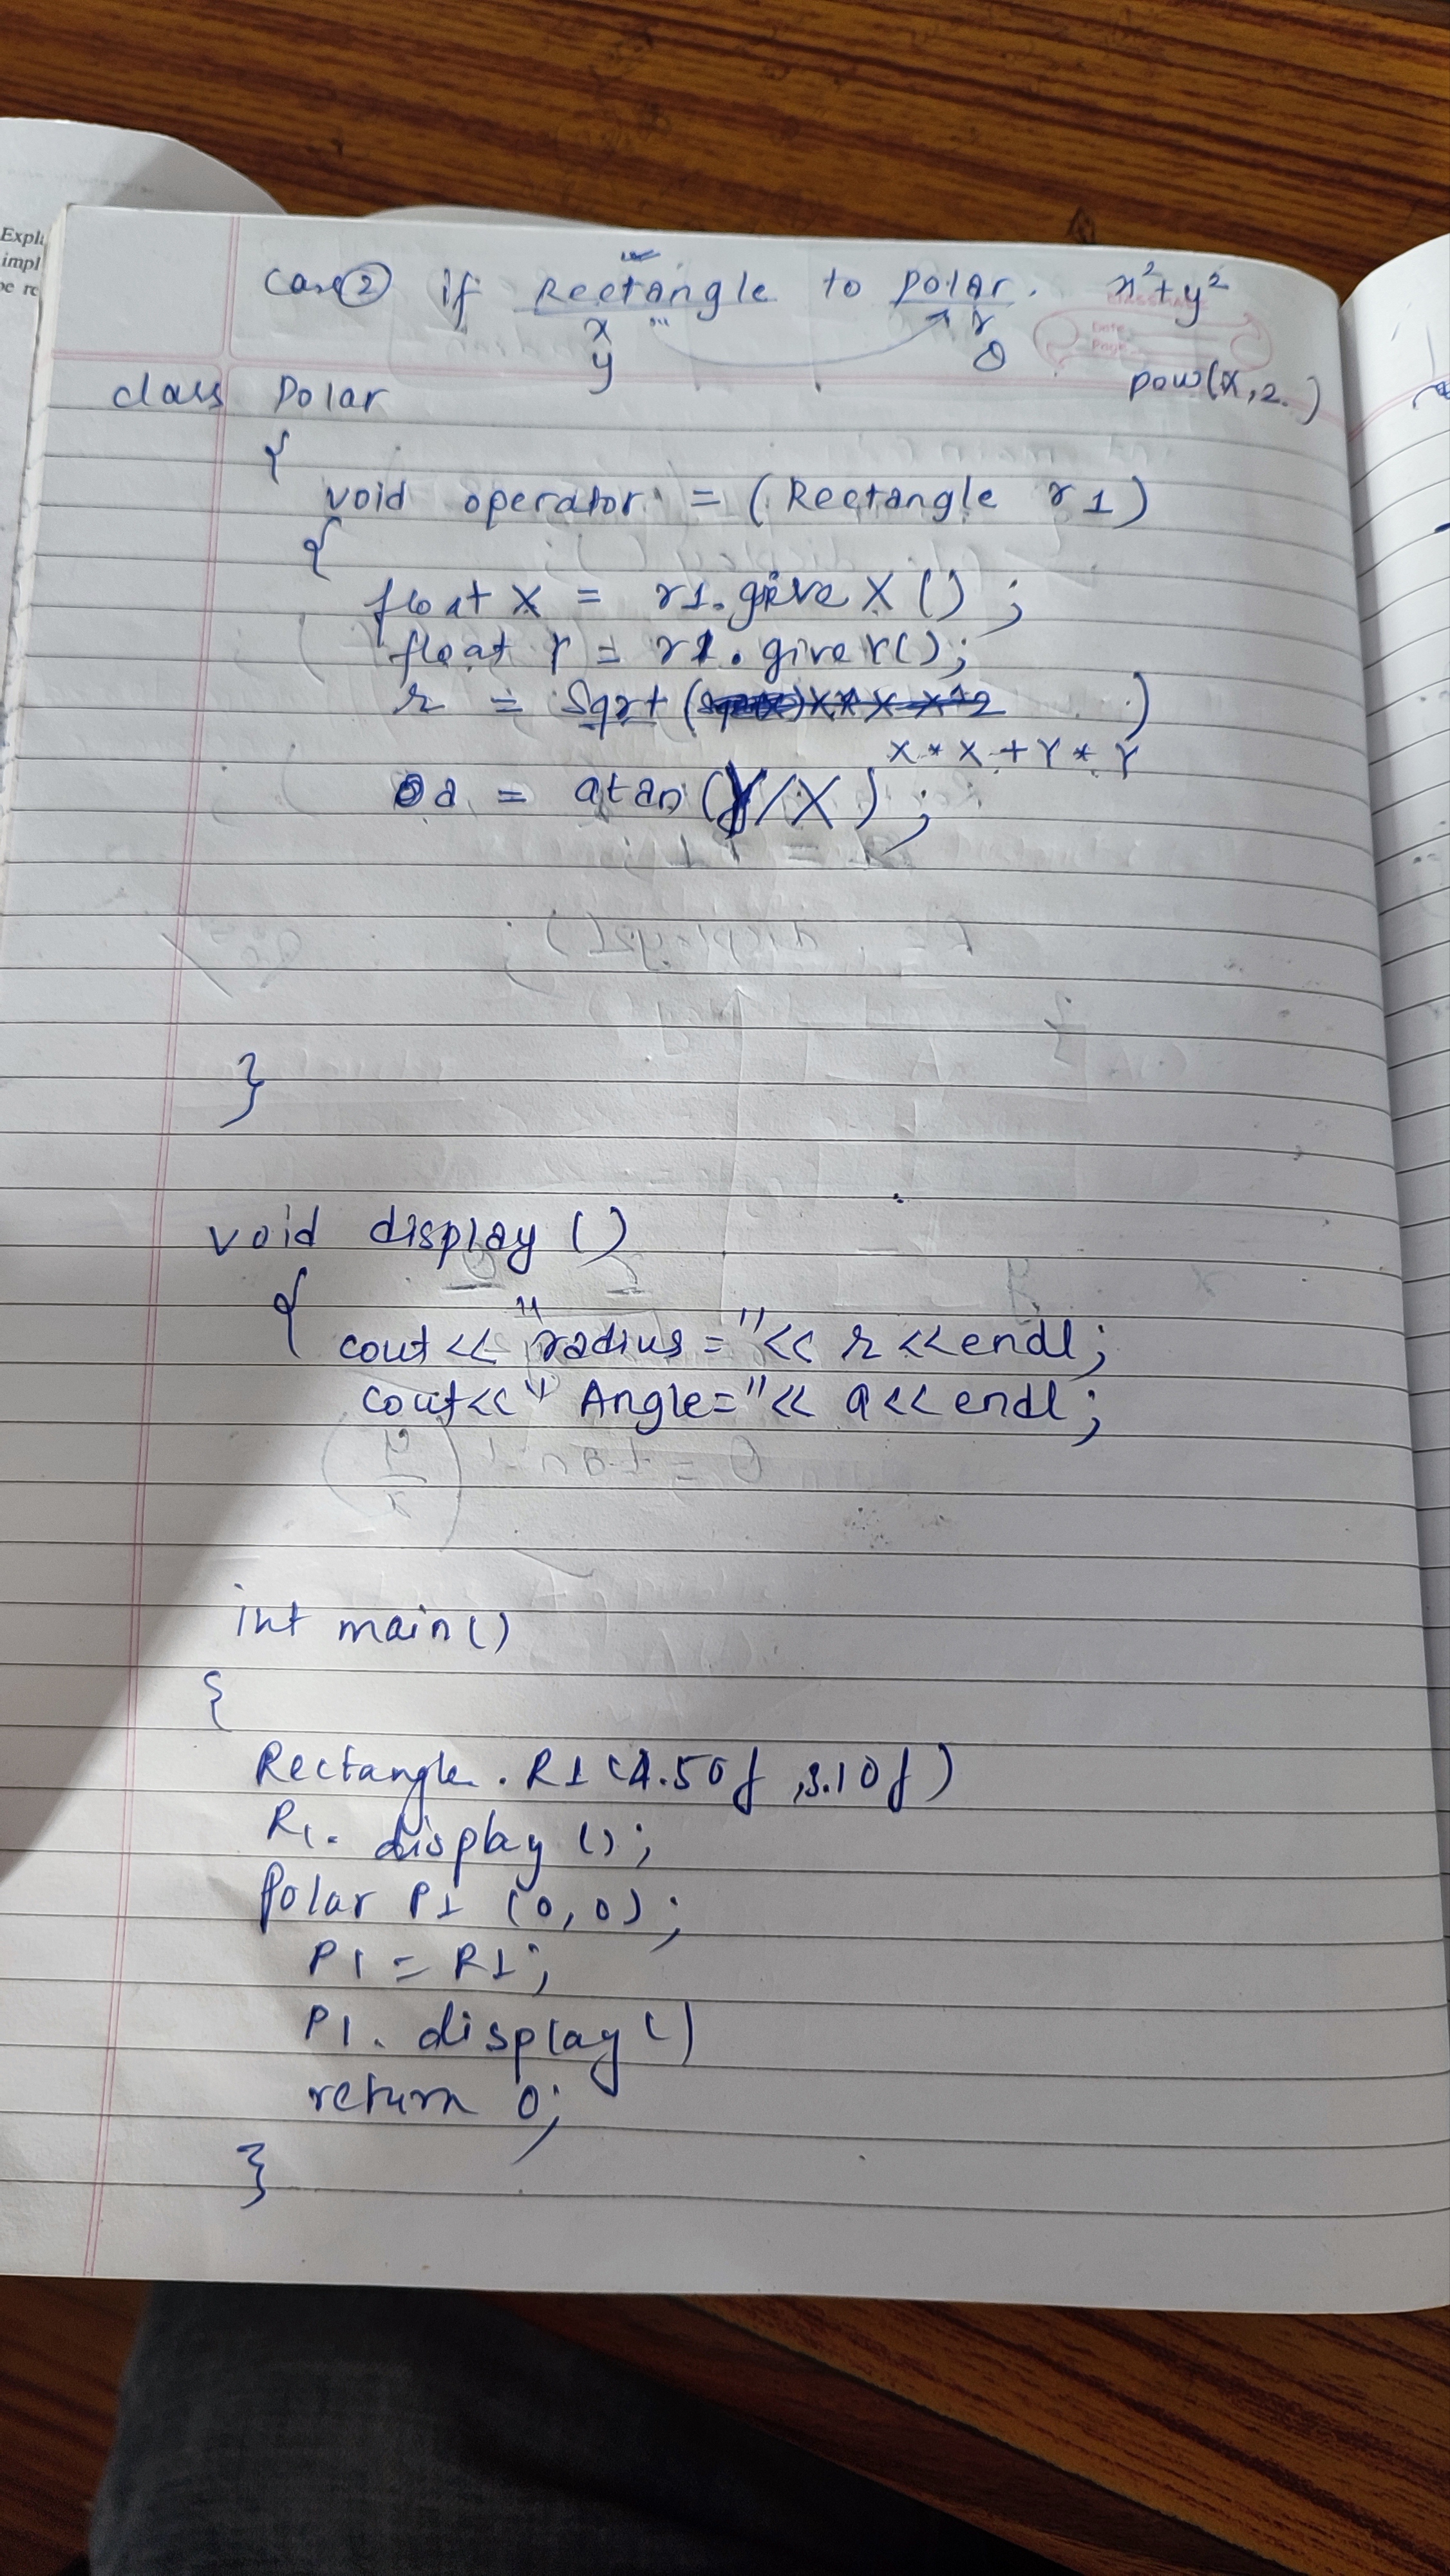 Expl
impl
be re
Case ② if Rectangle to polar. x²+y²
x r
y θ
pow(x,2.)
class Polar
{
void operator = (Rectangle r1)
{
float X = r1.giveX();
float Y = r1.giveY();
r = sqrt ( )
X * X + Y * Y
a = atan(Y/X);
}
void display ()
{
cout<< "radius = "<< r <<endl;
cout<<" Angle="<< a<< endl;
int main()
{
Rectangle. R1(4.50f ,3.10f)
R1. display ();
Polar P1 (0,0);
P1 = R1;
P1. display()
return 0;
}